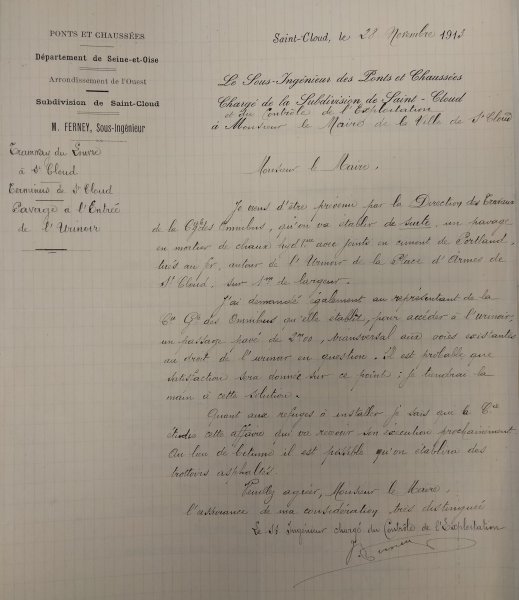 PONTS ET CHAUSSÉES
Département de Seine-et-Oise
Arrondissement de l'Ouest
Subdivision de Saint-Cloud
M. FERNEY, Sous-Ingénieur
Tramway du Louvre
à St Cloud
Terminus de St Cloud
Pavage à l'Entrée
de l'Urinoir
Saint-Cloud, le 28 Novembre 1913
Le Sous-Ingénieur des Ponts et Chaussées
Chargé de la Subdivision de Saint-Cloud
et du Contrôle de l'Exploitation
à Monsieur le Maire de la Ville de St Cloud
Monsieur le Maire,
Je viens d'être prévenu par la Direction des Travaux
de la Cie des Omnibus, qu'on va établir de suite, un pavage
en mortier de chaux avec joints en ciment de Portland,
tirés au fer, autour de l'Urinoir de la Place d'Armes de
St Cloud, sur 1m de largeur.
J'ai demandé également au représentant de la
Cie Gle des Omnibus qu'elle établit, pour accéder à l'urinoir,
un passage pavé de 2m00, transversal aux voies existantes
au droit de l'urinoir en question. Il est probable que
satisfaction sera donnée sur ce point : je tiendrai la
main à cette solution.
Quant aux refuges à installer je sais que la Cie
étudie cette affaire qui va recevoir son exécution prochainement
Au lieu de bitume il est possible qu'on établira des
trottoirs asphaltés.
Veuillez agréer, Monsieur le Maire,
l'assurance de ma considération très distinguée
Le Ss Ingénieur chargé du Contrôle de l'Exploitation